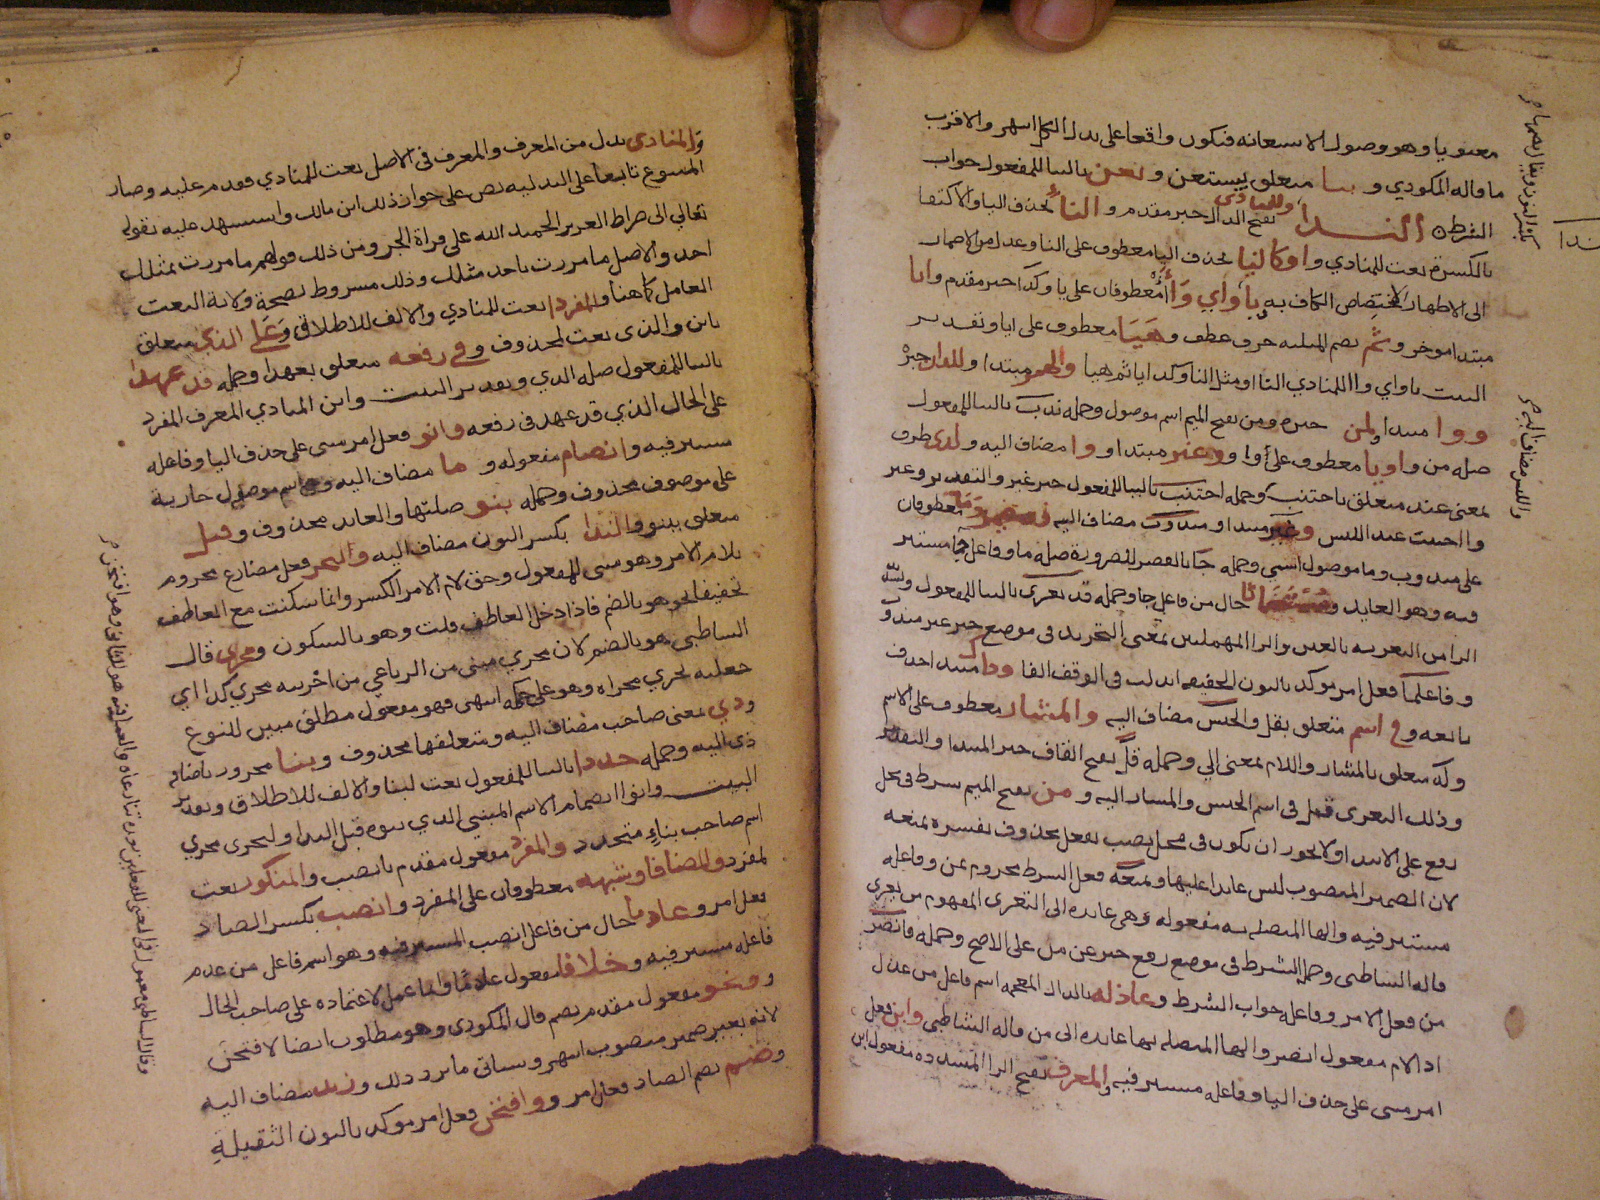 معنويا وهو وصول الاستعانة فيكون واقعا على بدل الكل انتهى والاقرب
ما قاله المكودي و بيا متعلق بيستعن و يعن بالبنا للمفعول جواب
الشرط النــدا وللمنادى بفتح الدال خبر مقدم و الناء بحذف اليا والاكتفا
بالكسرة نعت للمنادي و او كالنا بحذف اليا معطوف على النا وعدل من الاضمار
الى الاظهار الكاف به يا واي وآ معطوفان على يا وكذا خبر مقدم و ايا
مبتدا موخر و ثم بضم المثلثة حرف عطف و هيا معطوف على ايا وتقدير
البيت يا واي وآ للمنادي النا او مثل النا وكذا ايا ثم هيا والهمز مبتدا و للدان خبره
و وا مبتدا و لمن خبره ومن بفتح الميم اسم موصول وجملة ندب بالبنا للمفعول
صلة من و او يا معطوف على وا و وغير مبتدا و وا مضاف اليه و لدى ظرف
بمعنى عند متعلق باجتنب وجملة اجتنب بالبنا للمفعول خبر غير والتقدير وغير
وا اجتنب عند اللبس وغير مبتدا و مندوب مضاف اليه ومضمر وما معطوفان
على مندوب وما موصول اسمي وجملة جا بالقصر للضرورة صلة ما وفاعل جا مستتر
فيه وهو العايد و مستغاثا حال من فاعل جا وجملة قد يعرى بالبنا للمفعول
الرا من التعرية بالعين والرا المهملتين بمعنى التجريد في موضع خبر غير مندوب
و فاعلما فعل امر موكد بالنون الخفيفة ابدلت في الوقف الفا وذاك مبتدا حذف
تابعه و في اسم متعلق بقل والجنس مضاف اليه والمشار معطوف على الاسم
و له متعلق بالمشار واللام بمعنى الي وجملة قل بفتح القاف خبر المبتدا والتقدير
وذلك التعري قل في اسم الجنس والمشار اليه و من بفتح الميم شرط في محل
رفع على الابتدا ولا يجوز ان تكون في محل نصب بفعل محذوف يفسره يمنعه
لان الضمير المنصوب ليس عايدا عليها و يمنعه فعل الشرط مجزوم بمن وفاعله
مستتر فيه والها المتصلة به مفعوله وهي عايدة الى التعري المفهوم من يعرى
قاله الشاطبي وجملة الشرط في موضع رفع خبر عن من على الاصح وجملة فانصر
من فعل الامر وفاعله جواب الشرط و عاذله بالذال المعجمة اسم فاعل من عذل
اذ الام مفعول انصر والها المتصلة بها عايدة الى من قاله الشاطبي وابن فعل
امر مبني على حذف اليا وفاعله مستتر فيه والمعرف بفتح الرا المشددة مفعول ابن
بكسر النون ويقال بضمها
واللبس مضاف اليه
ندا
والمنادى بدل من المعرف والمعرف في الاصل نعت للمنادي فقدم عليه وصار
المتبوع تابعا على البدلية نص على جواز ذلك ابن مالك واستشهد عليه بقوله
تعالي الى صراط العزيز الحميد الله على قراة الجر ومن ذلك قولهم ما مررت بمثلك
احد والاصل ما مررت باحد مثلك وذلك مشروط بصحة ولاية النعت
العامل كما هنا و المفردا نعت للمنادي والالف للاطلاق و على الذي متعلق
بابن والذي نعت لمحذوف و في رفعه متعلق بعهدا وجملة قد عهدا
بالبنا للمفعول صلة الذي وتقدير البيت وابن المنادي المعرف المفرد
على الحال الذي قد عهد في رفعه وانو فعل امر مبني على حذف اليا وفاعله
مستتر فيه و انضمام مفعوله و ما مضاف اليه وهي اسم موصول جارية
على موصوف محذوف وجملة بنو صلتها والعايد محذوف و قبل
متعلق ببنو والندا بكسر النون مضاف اليه وليجر فعل مضارع مجزوم
بلام الامر وهو مبني للمفعول وحق لام الامر الكسر وانما سكنت مع العاطف
تخفيفا نحو هو بالضم فاذا دخل العاطف قلت وهو بالسكون و مجرى قال
الشاطبي هو بالضم لان مجري مبني من الرباعي من اجريته مجري كذا اي
جعلته يجري مجراه وهو على حكمه انتهى فهو مفعول مطلق مبين للنوع
و ذي بمعنى صاحب مضاف اليه ومتعلقها محذوف و بنا مجرور باضافة
ذي اليه وجملة جددا بالبنا للمفعول نعت لبنا والالف للاطلاق وتقدير
البيت وانوا انضمام الاسم المبني الذي بنوه قبل الندا وليجرى مجري
اسم صاحب بناء متجدد والمفرد مفعول مقدم بانصب والمنكور نعت
لمفرد والمضافا وشبهه معطوفان على المفرد و انصب بكسر الصاد
فعل امر و عادما حال من فاعل انصب المستتر فيه وهو اسم فاعل من عدم
فاعله مستتر فيه و خلافا مفعول عادما وانما عمل لاعتماده على صاحب الحال
و ونحو مفعول مقدم بضم قال المكودي وهو مطلوب ايضا لافتحن
لانه بغير ضمير منصوب انتهى وسياتي ما يرد ذلك و زيد مضاف اليه
و ضم بضم الضاد فعل امر و وافتحن فعل امر موكد بالنون الثقيلة